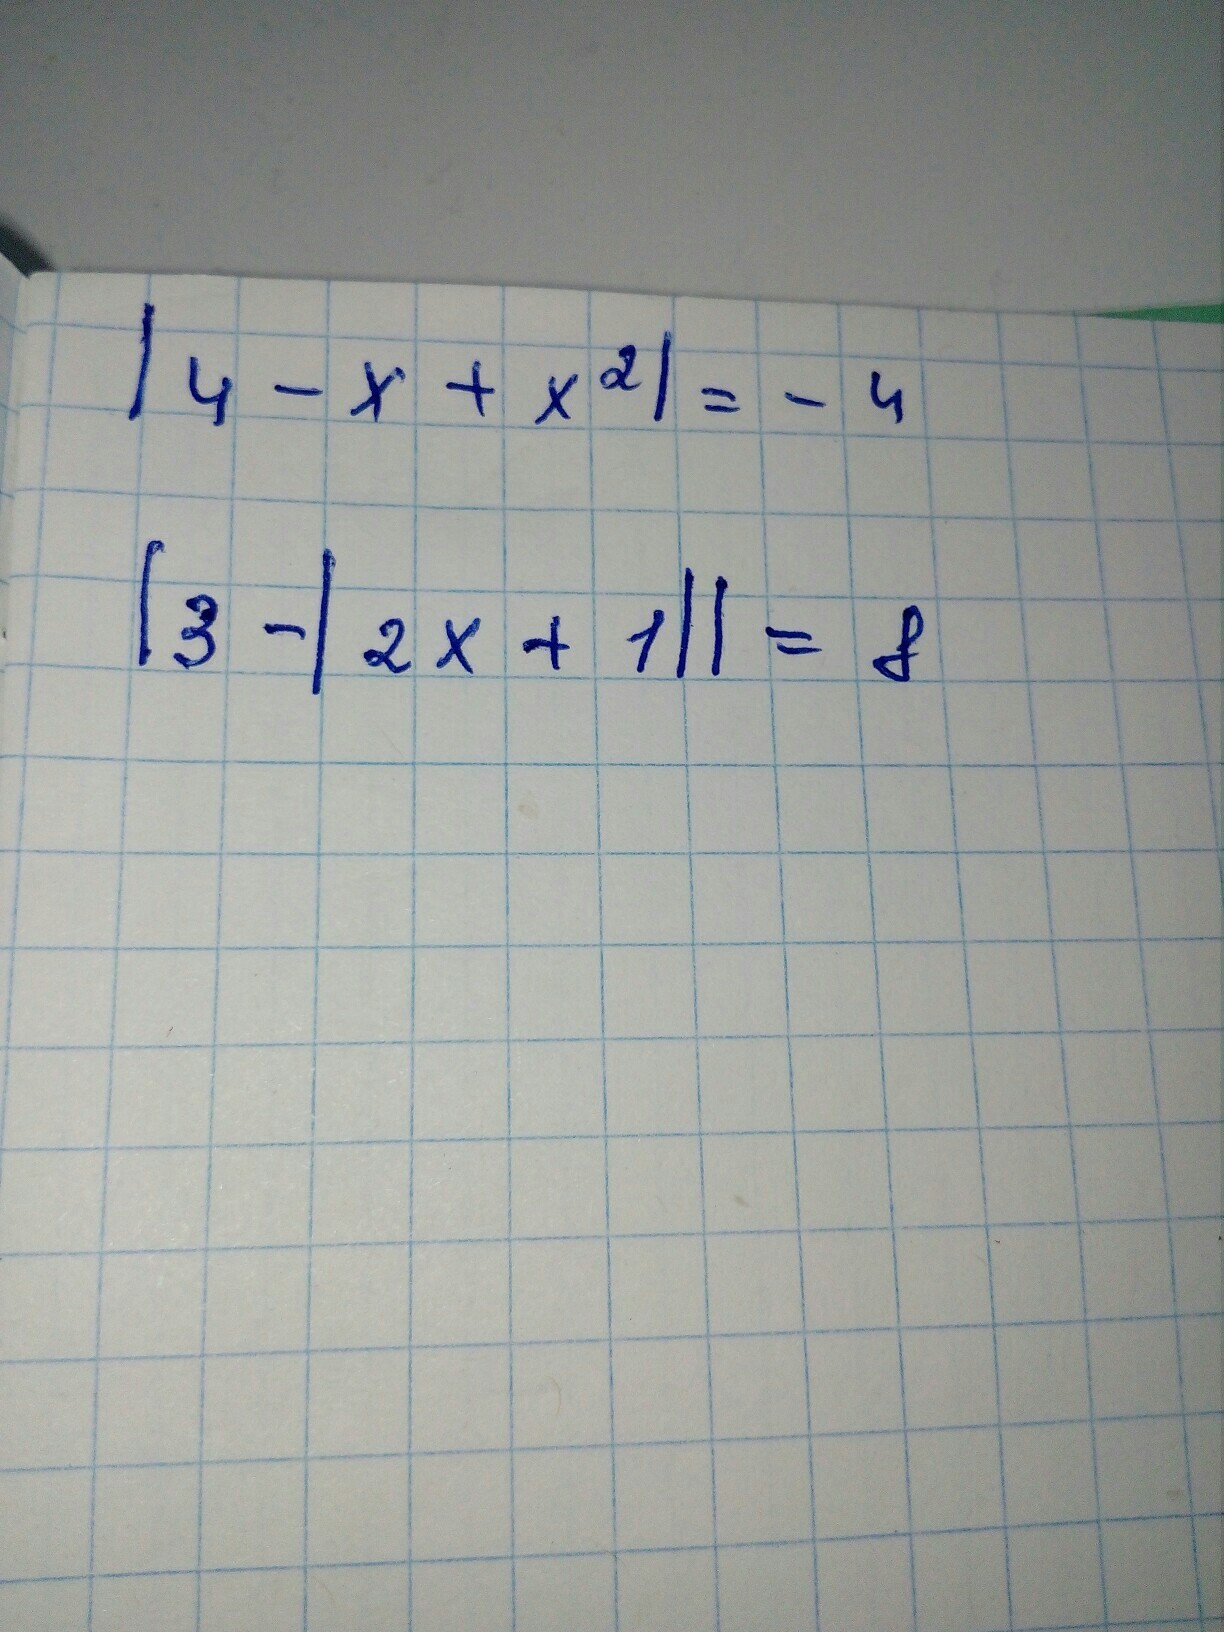 |4 - x + x²| = - 4
|3 - |2x + 1|| = 8